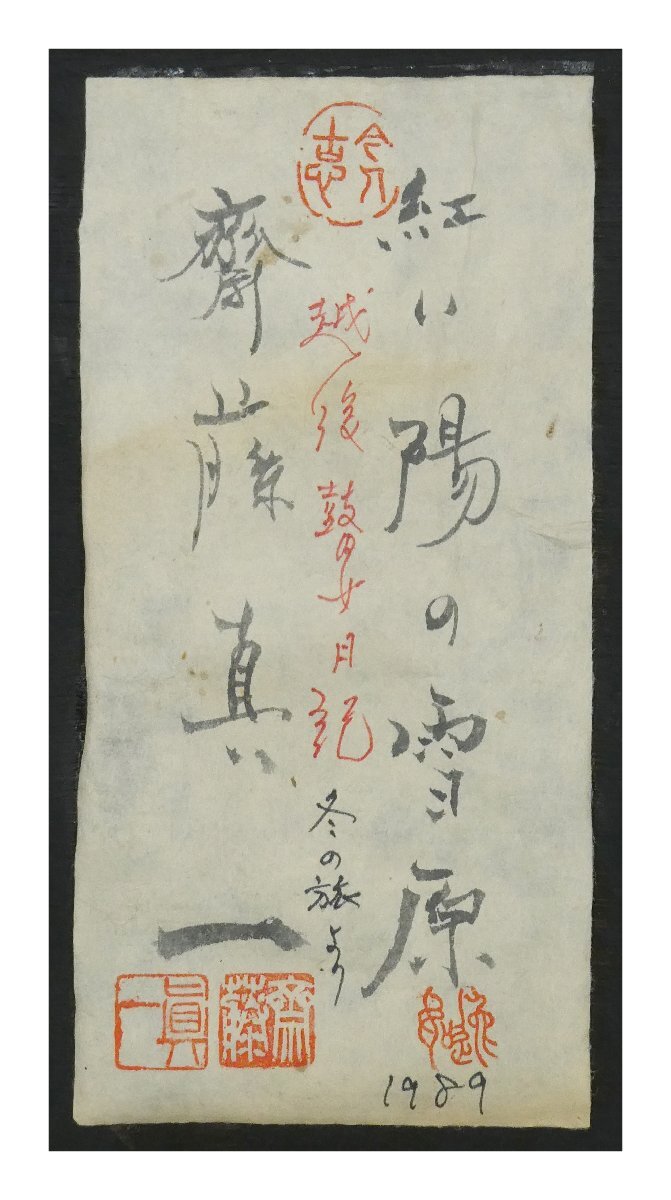 紅い陽の雪原
1989
越後瞽女日記
冬の旅より
齋藤真一
齋藤
眞一